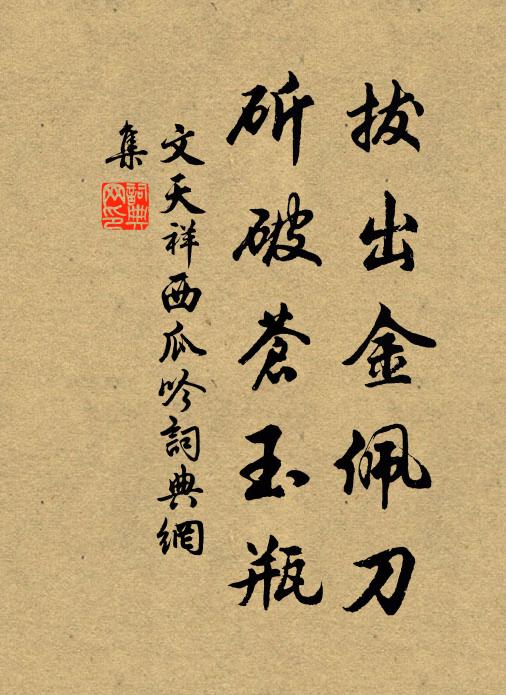 拔出金佩刀
斫破蒼玉瓶
文天祥西瓜吟詞典網
集
詞典網印